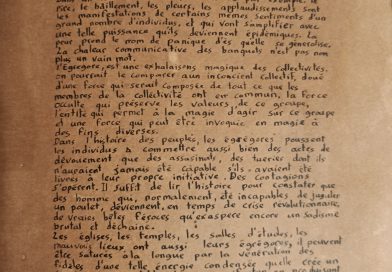 rires, le bâillement, les pleurs, les applaudissements sont
les manifestations de certains mêmes sentiments d'un
grand nombre d'individus, et qui vont s'amplifier avec
une telle puissance qu'ils deviennent épidémiques. La
peur prend le nom de panique dès qu'elle se généralise.
La chaleur communicative des banquets n'est pas non
plus un vain mot.
l'Égrégore, est une exhalaisons magique des collectivités.
on pourrait le comparer aux inconcient collectif, doué
d'une force qui serait composée de tout ce que les
membres de la collectivité ont en commun, la force
occulte qui préserve les valeurs, de ce groupe,
l'entité qui permet à la magie d'agir sur ce groupe
et une force qui peut être invoquée, en magie à
des fins diverses.
Dans l'histoire des peuples, les égrégores poussent
les individus à commettre aussi bien des actes de
dévouement que des assassinats, des tueries dont ils
n'auraient jamais été capable s'ils avaient été
livrés à leur propre initiative. Des contagions
s'opèrent. Il suffit de lire l'histoire pour constater que
des homme qui, normalement, été incapables de juguler
un poulet, devaient, en temps de crise révolutionnaire,
de vraies bêtes féroces qu'exaspère encore un sadisme
brutal et déchaîné.
Les églises, les temples, les salles d'études, les
mauvais lieux ont aussi leurs égrégores, il peuvent
être saturés à la longue par la vénération des
fidèles d'une telle énergie condensée qu'elle crée un